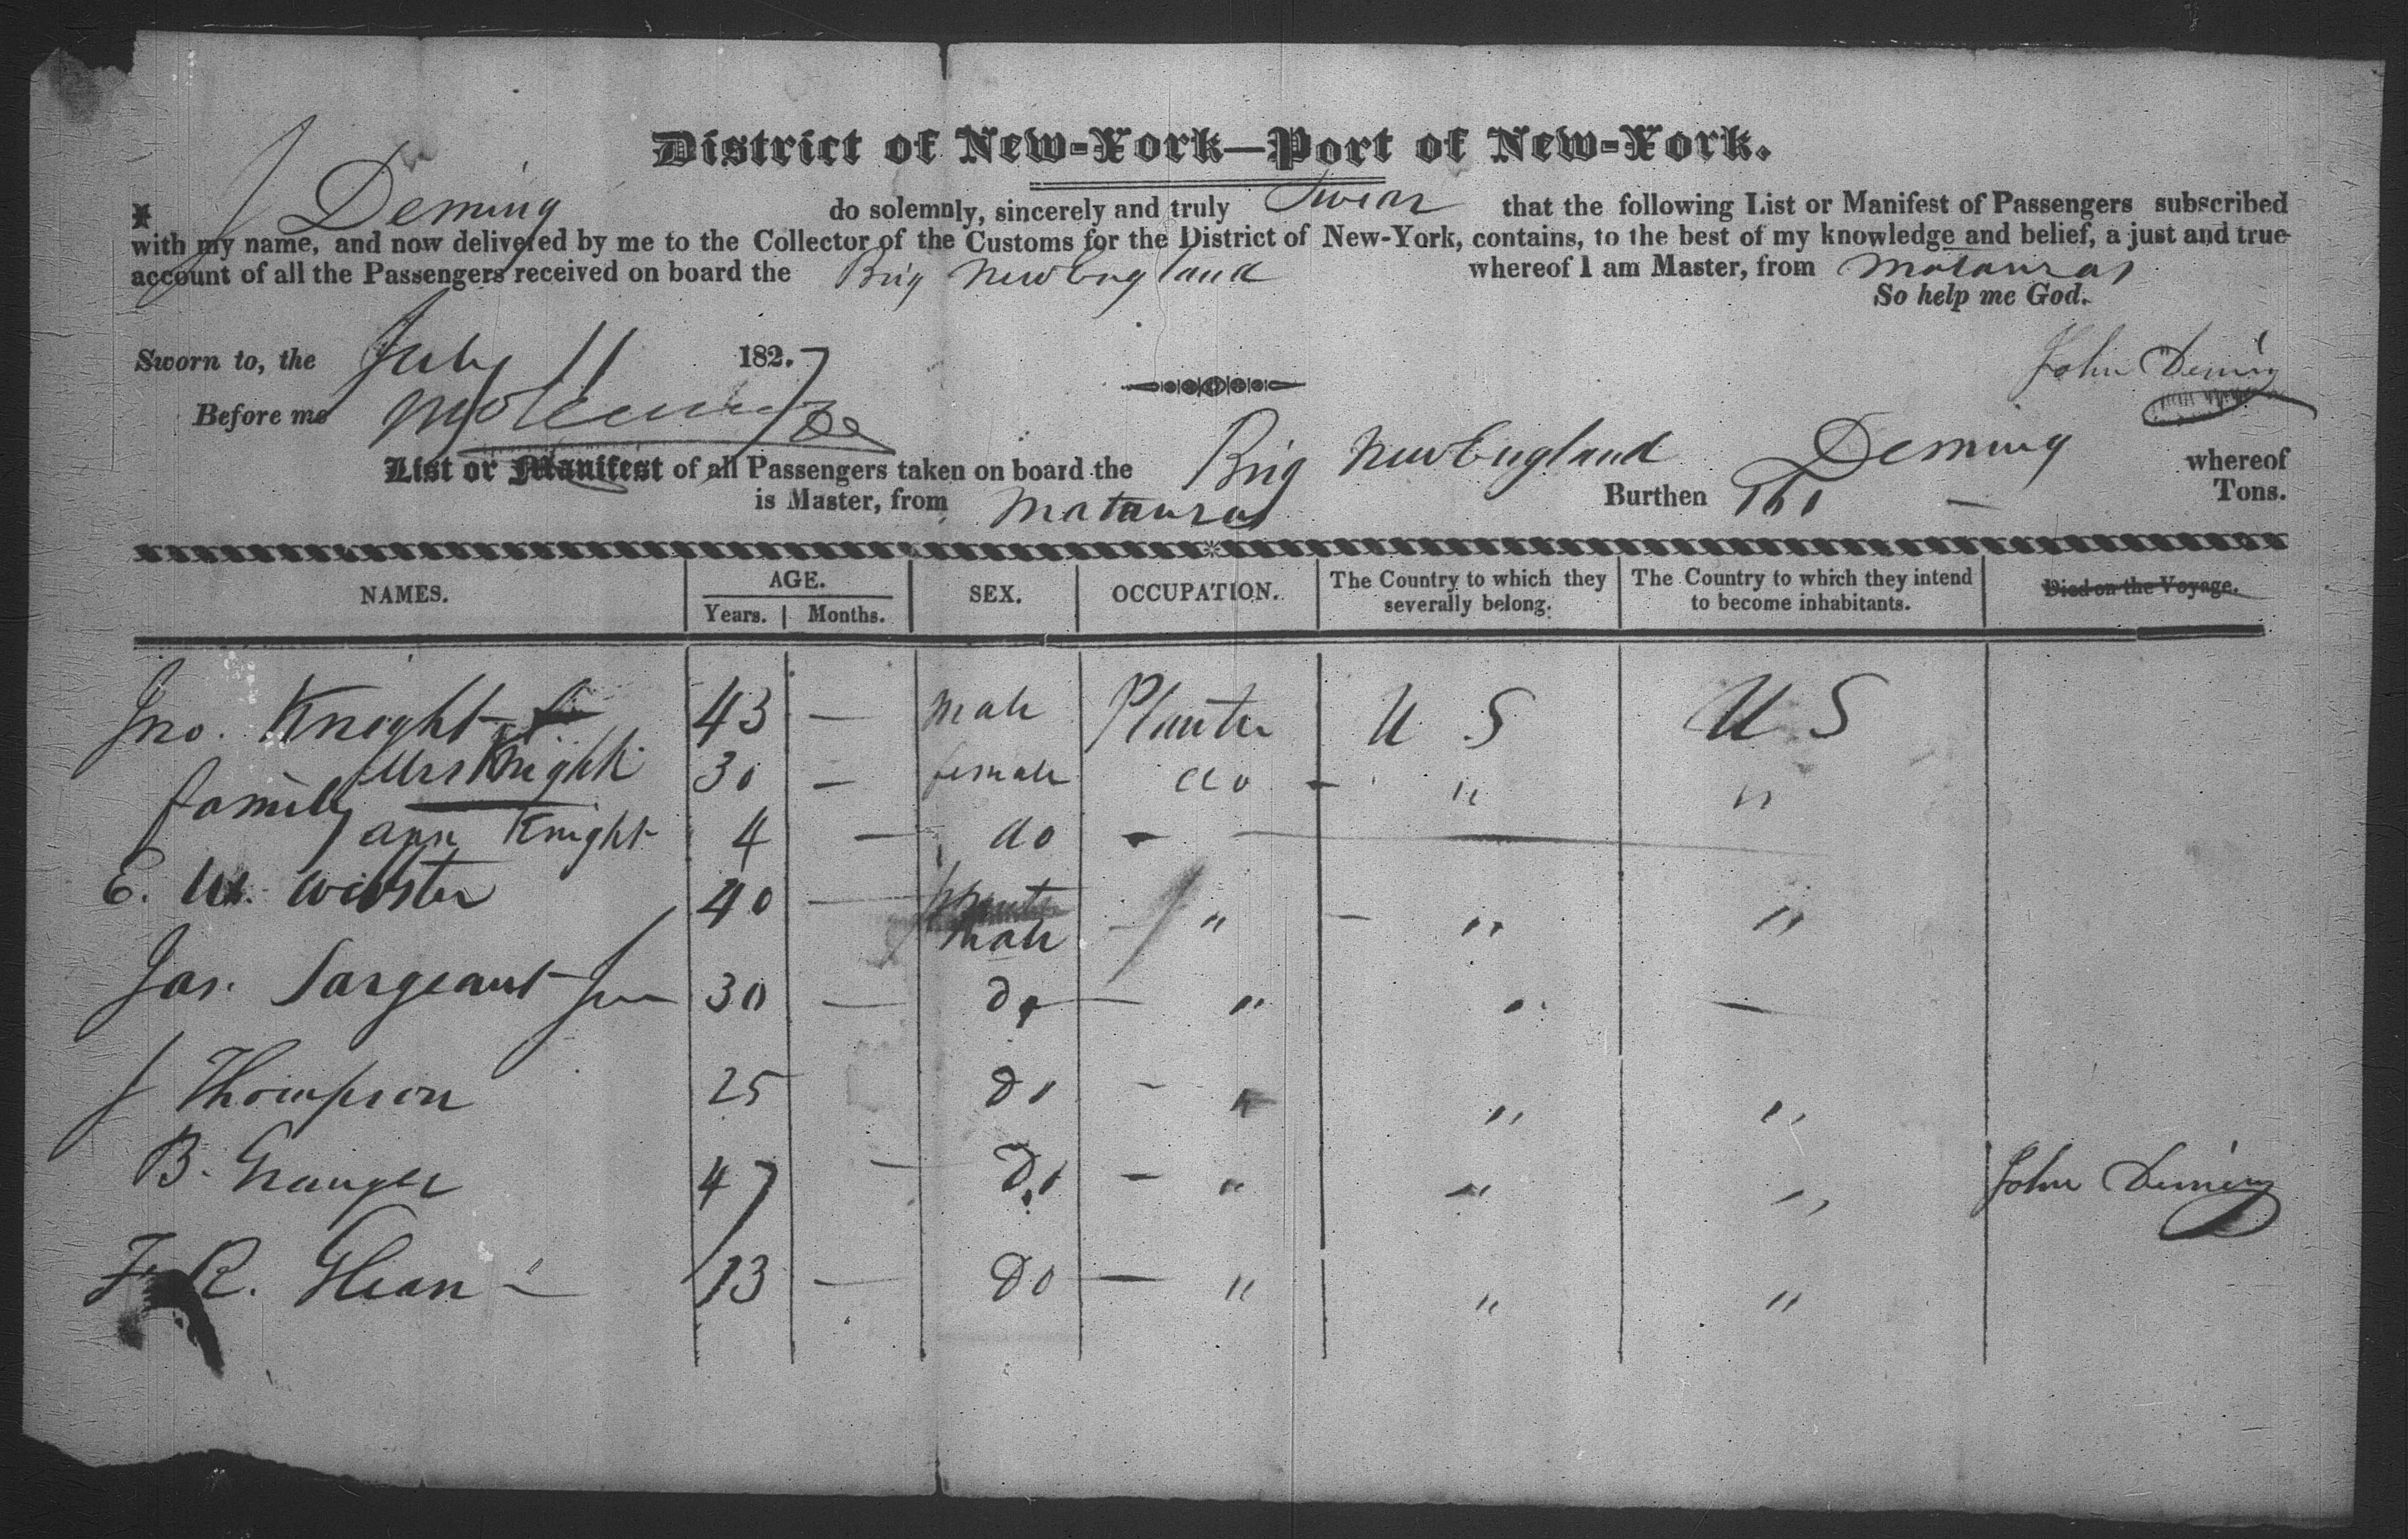 District of New-York—Port of New-York.
I J Deming do solemnly, sincerely and truly Swear that the following List or Manifest of Passengers subscribed
with my name, and now delivered by me to the Collector of the Customs for the District of New-York, contains, to the best of my knowledge and belief, a just and true
account of all the Passengers received on board the Brig New England whereof I am Master, from Matanzas
So help me God.
Sworn to, the July 11 1827
John Deming
Before me
List or Manifest of all Passengers taken on board the Brig New England Deming whereof
is Master, from Matanzas Burthen 161 — Tons.
NAMES. AGE. SEX. OCCUPATION. The Country to which they severally belong. The Country to which they intend to become inhabitants. Died on the Voyage.
Years. Months.
Jno. Knight 43 — male Planter U S U S
family Mrs Knight 30 — female do — " "
Ann Knight 4 — do —
E. W. Webster 40 — male — " — " "
Jas. Sargeant Jun 30 — do — " " —
J Thompson 25 Do — " " "
B. Granger 47 — Do — " " " John Deming
F. R. Glean — 13 — Do — " " "